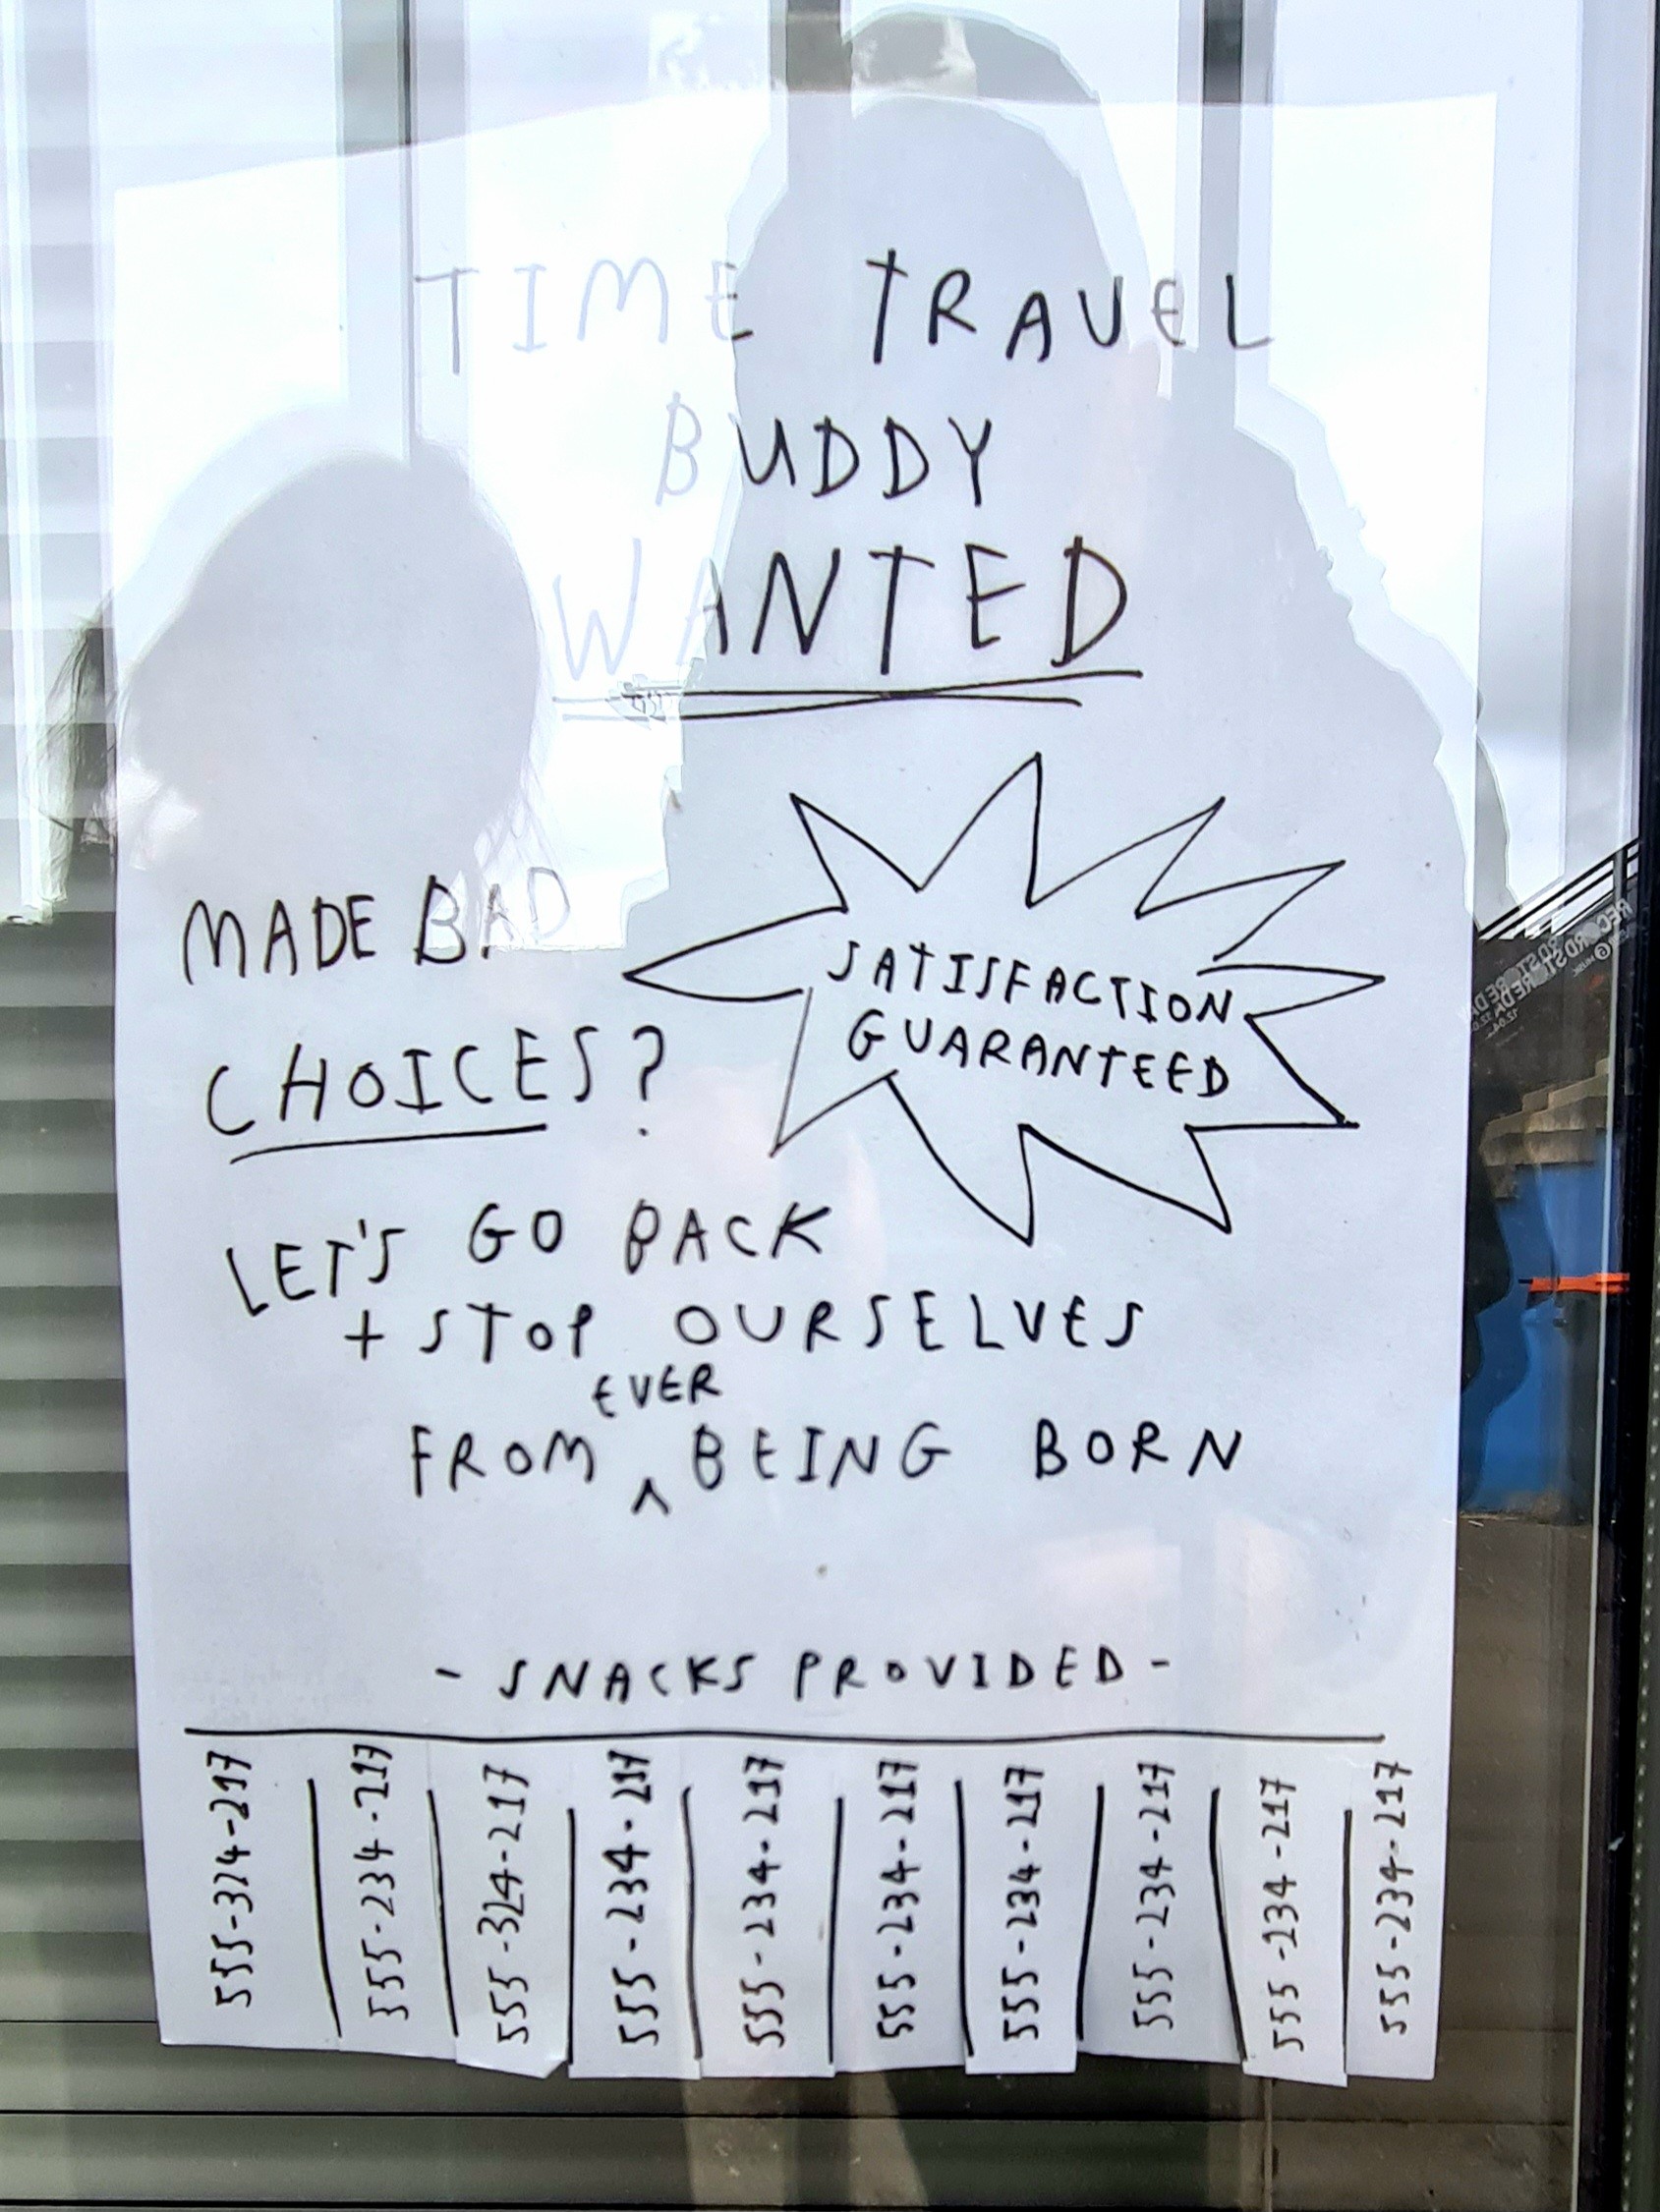 TIME TRAVEL
BUDDY
WANTED
MADE BAD
CHOICES?
SATISFACTION
GUARANTEED
LET'S GO BACK
+ STOP OURSELVES
EVER
FROM ^ BEING BORN
- SNACKS PROVIDED -
555-324-217
555-234-217
555-324-217
555-234-217
555-234-217
555-234-217
555-234-217
555-234-217
555-234-217
555-234-217